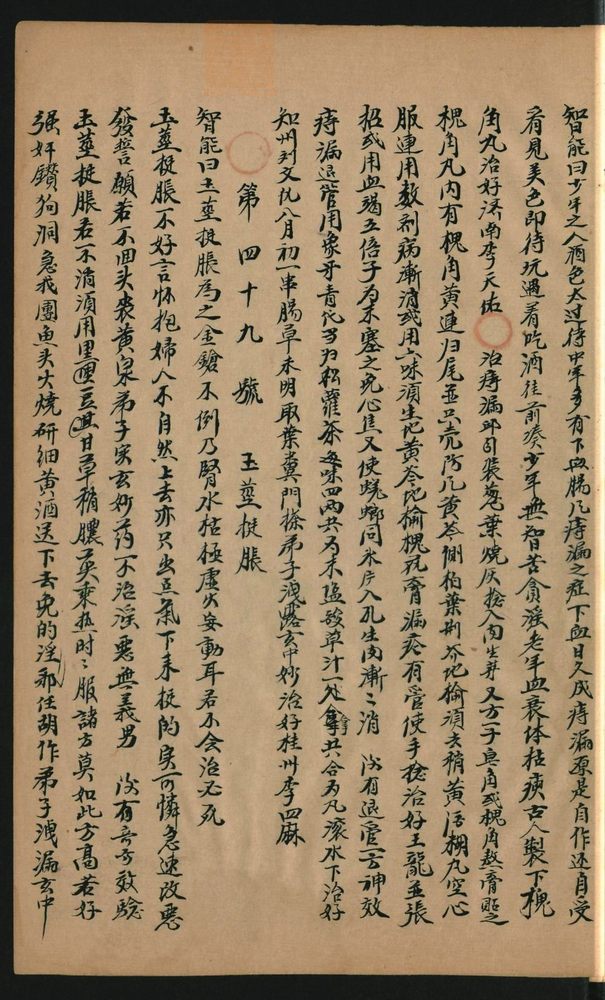 智能曰少年之人酒色太过待中年多有下血肠风痔漏之症下血日久成痔漏原是自作还自受
看見美色即待玩遇着吃酒往前凑少年無智苦貪淫老年血衰体枯瘐古人製下槐
角丸治好济南李天佑 治痔漏卬引裝葱葉燒灰捻入肉生芽又方子皂角或槐角熬膏貼之
槐角丸内有槐角黄連归尾並只壳防风黄芩側柏葉荆芥地榆須去稍黄酒糊丸空心
服連用数剂病漸消或用六味須生地黄芩地榆槐花膏漏疮有管使手捻治好王龍並張
招或用血竭五倍子为末塞之免心焦又使蜣螂同氷片入孔生肉漸〻消 後有退管一方神效
痔漏退管用象牙青代当归松蘿茶每味四两共为末塩酸草汁一処拿共合为丸滚水下治好
知州刘文 八月初一串腸草未明取葉糞門搽弟子洩露玄中妙治好桂州李四麻
第四十九 號 玉莖挺脹
智能曰玉莖挺脹为之金鎗不倒乃腎水枯極虚火妄動耳若不会治必死
玉莖挺脹不好言怀抱婦人不自然上去亦只出豆氣下来挺的实可憐急速改惡
發誓願若不回头丧黄泉弟子实玄妙药不治淫惡無義男 後有奇方效驗
玉莖挺脹若不消須用黑豆並甘草稍膿 乘热時〻服諸方莫如此方高若好
强奸鑽狗洞急我團鱼头火燒研細黄酒送下去免的淫邪任胡作弟子洩漏玄中